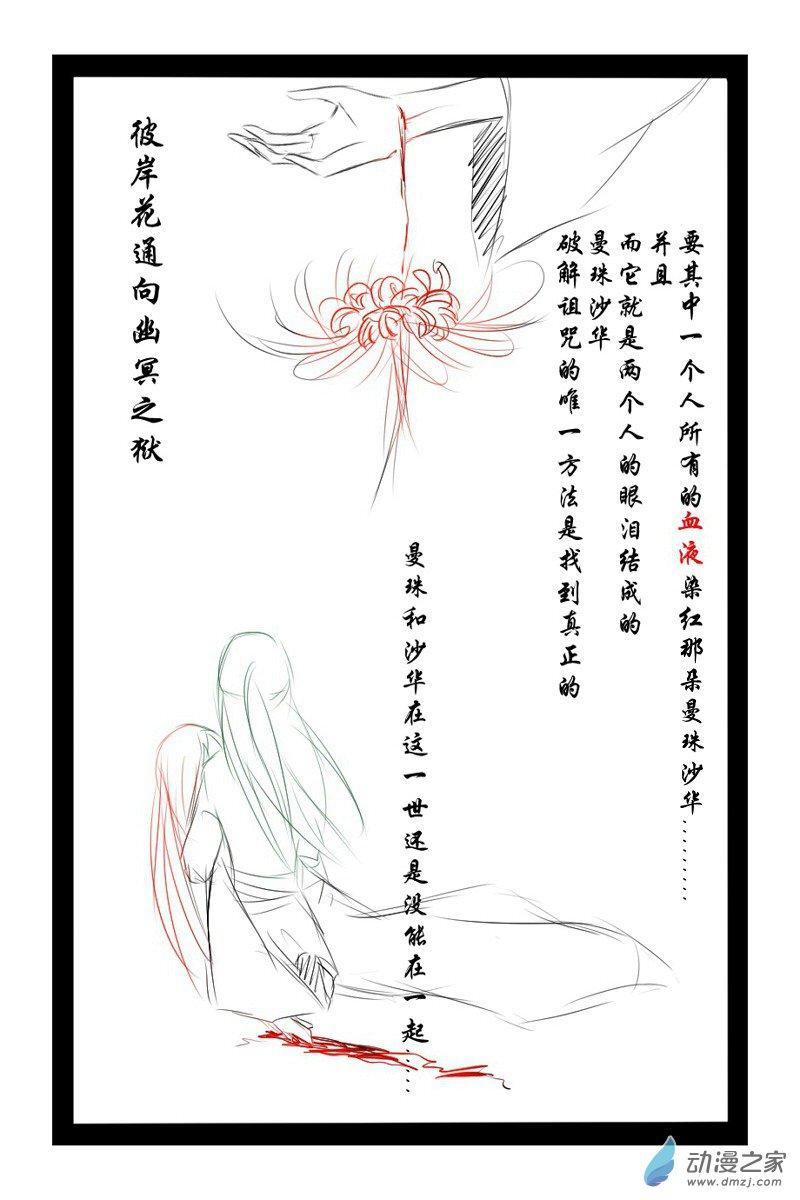 彼岸花通向幽冥之狱
破解诅咒的唯一方法是找到真正的
曼珠沙华
而它就是两个人的眼泪结成的
并且
要其中一个人所有的血液染红那朵曼珠沙华………
曼珠和沙华在这一世还是没能在一起……
动漫之家
www.dmzj.com